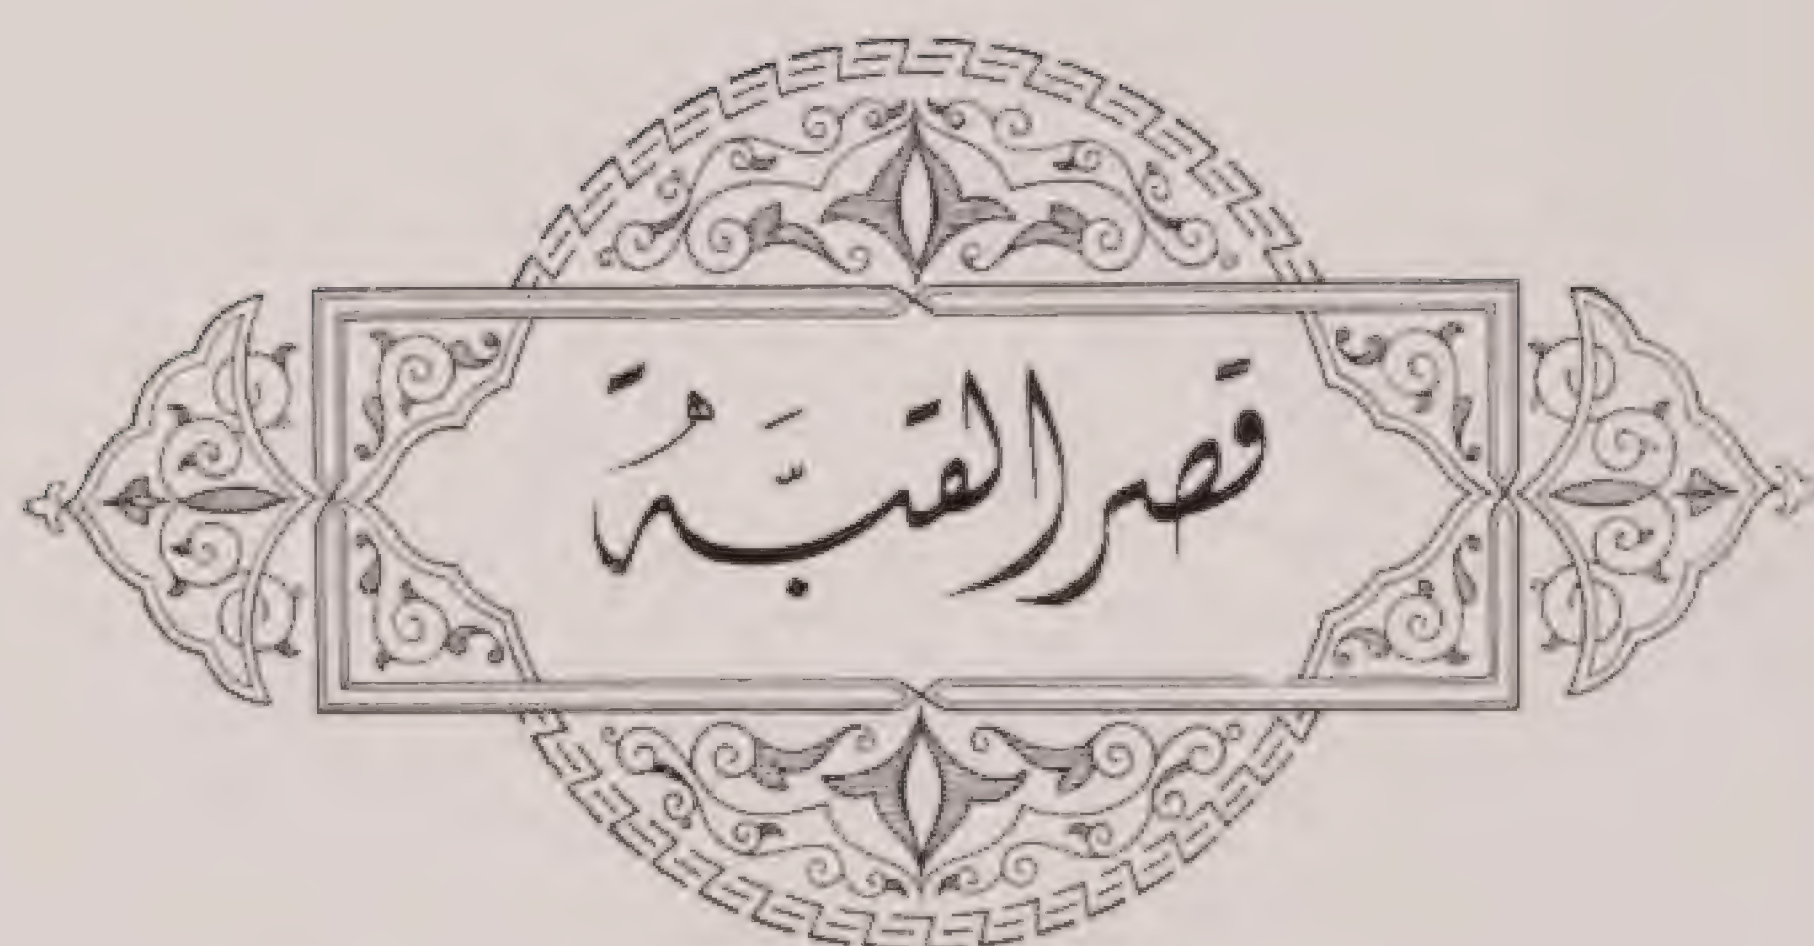 قصر القبّة